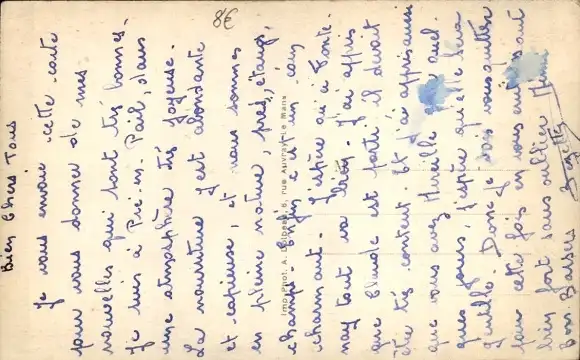 8€
Bien Chers Tous
Je vous envoie cette carte
pour vous donner de mes
nouvelles qui sont très bonnes.
Je suis à Pré-en-Pail, dans
une atmosphère très joyeuse.
La nourriture y est abondante
et copieuse, et nous sommes
en pleine nature prés, étangs,
champs. Enfin c'est un coin
charmant. J'espère qu'à Fonte-
nay tout va bien. J'ai appris
que Claude est parti il devait
être très content. Et j'ai appris aussi
que vous avez Mireille quel-
ques jours, j'espère qu'elle sera
gentille. Donc je vais vous quitter
pour cette fois en vous embrassant
bien fort sans oublier
Bons Baisers
Imp. Phot. A. 6, rue Auvray, Le Mans